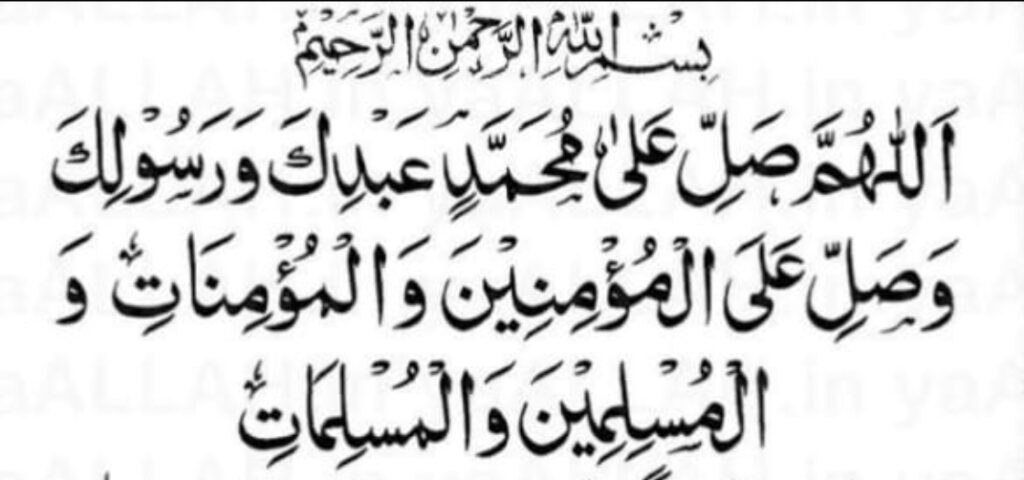 بِسْمِ اللهِ الرَّحْمٰنِ الرَّحِيْمِ
اَللّٰهُمَّ صَلِّ عَلٰى مُحَمَّدٍ عَبْدِكَ وَرَسُوْلِكَ
وَصَلِّ عَلَى الْمُؤْمِنِيْنَ وَالْمُؤْمِنَاتِ وَ
الْمُسْلِمِيْنَ وَالْمُسْلِمَاتِ